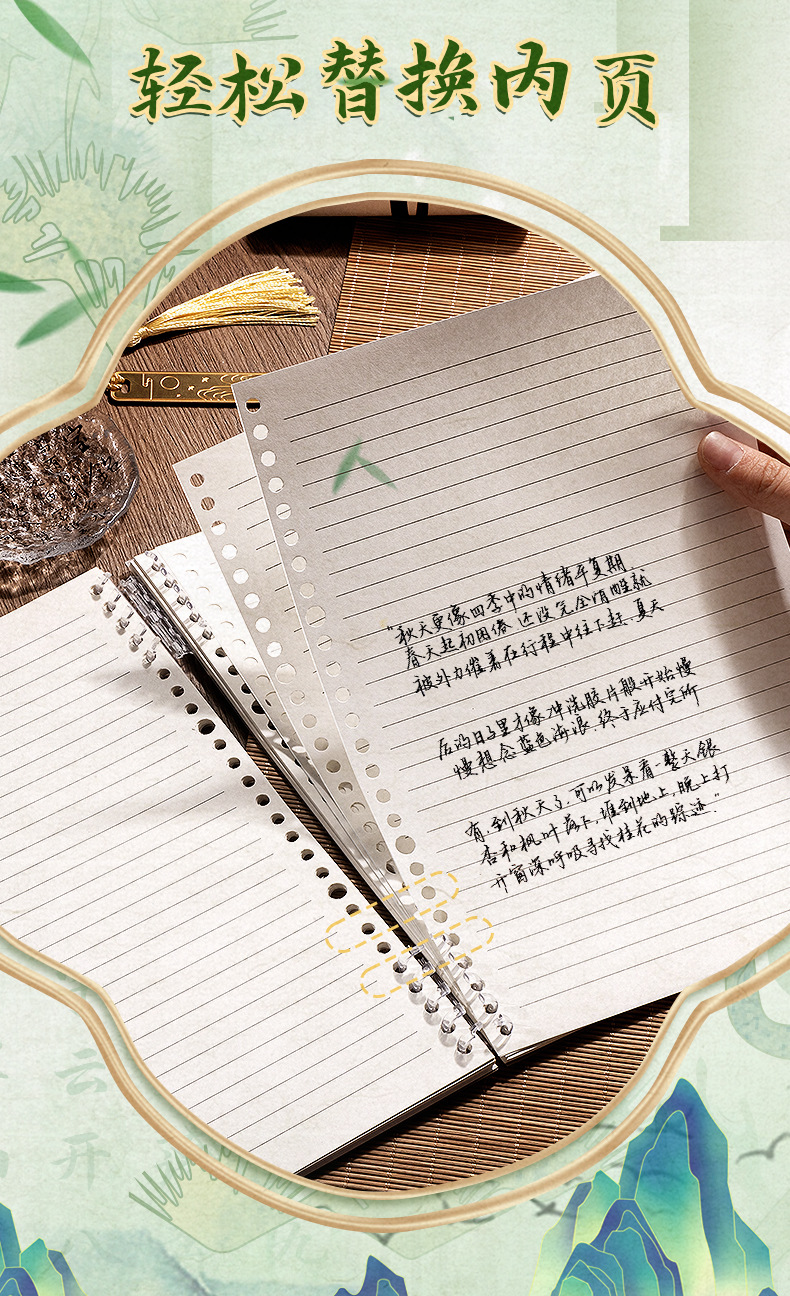 轻松替换内页
"秋天更像四季中的情绪平复期.
春天起初困倦.还没完全清醒就
被外力催着在行程中往下赶.夏天
后的日子里才像冲洗胶片般开始慢
慢想念蓝色海浪.终于应付完所
有,到秋天了,可以发呆看一整天银
杏和枫叶落下,堆到地上,晚上打
开窗深呼吸寻找桂花的踪迹."
云
开